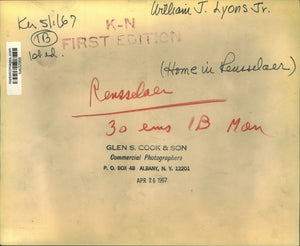 William J. Lyons Jr.
Kn 5/1/67
K-N
1B
FIRST EDITION
1ot ed.
(Home in Rensselaer)
Rensselaer
30 ems 1B Mon
GLEN S. COOK & SON
Commercial Photographers
P. O. BOX 48 ALBANY, N. Y. 12201
APR 26 1967